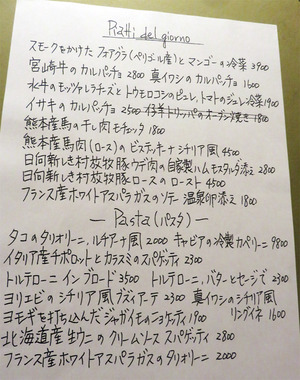 Piatti del giorno
スモークをかけた フォアグラ(ペリゴール産)と マンゴーの冷菜 3900
宮崎牛の カルパッチョ 2800 真イワシの カルパッチョ 1600
水牛のモッツァレラチーズと トウモロコシのピューレ、トマトのジュレ 冷菜 1900
イサキの カルパッチョ 2500 仔羊トリッパのオーブン焼き 1800
熊本産馬の干し肉 モチェッタ 1800
熊本産馬肉(ロース)の ビステッキーナ シチリア風 4500
日向新しき村放牧豚ウデ肉の自家製ハム モスタルダ添え 2800
日向新しき村放牧豚ロースの ロースト 4500
フランス産ホワイトアスパラガスの ソテー 温泉卵添え 1800
— Pasta (パスタ) —
タコのタリオリーニ、ルチアーナ風 2000 キャビアの冷製カペリーニ 9800
イタリア産チポロットと カラスミのスパゲティ 2300
トルテローニ イン ブロード 3500 トルテローニ、バターとセージで 2300
ヨリエビの シチリア風 ブズィアーテ 2300 真イワシのシチリア風
リングイネ 1600
ヨモギを打ち込んだ ジャガイモのニョケッティ 1900
北海道産 生ウニの クリームソース スパゲッティ 2800
フランス産ホワイトアスパラガスの タリオリーニ 2000